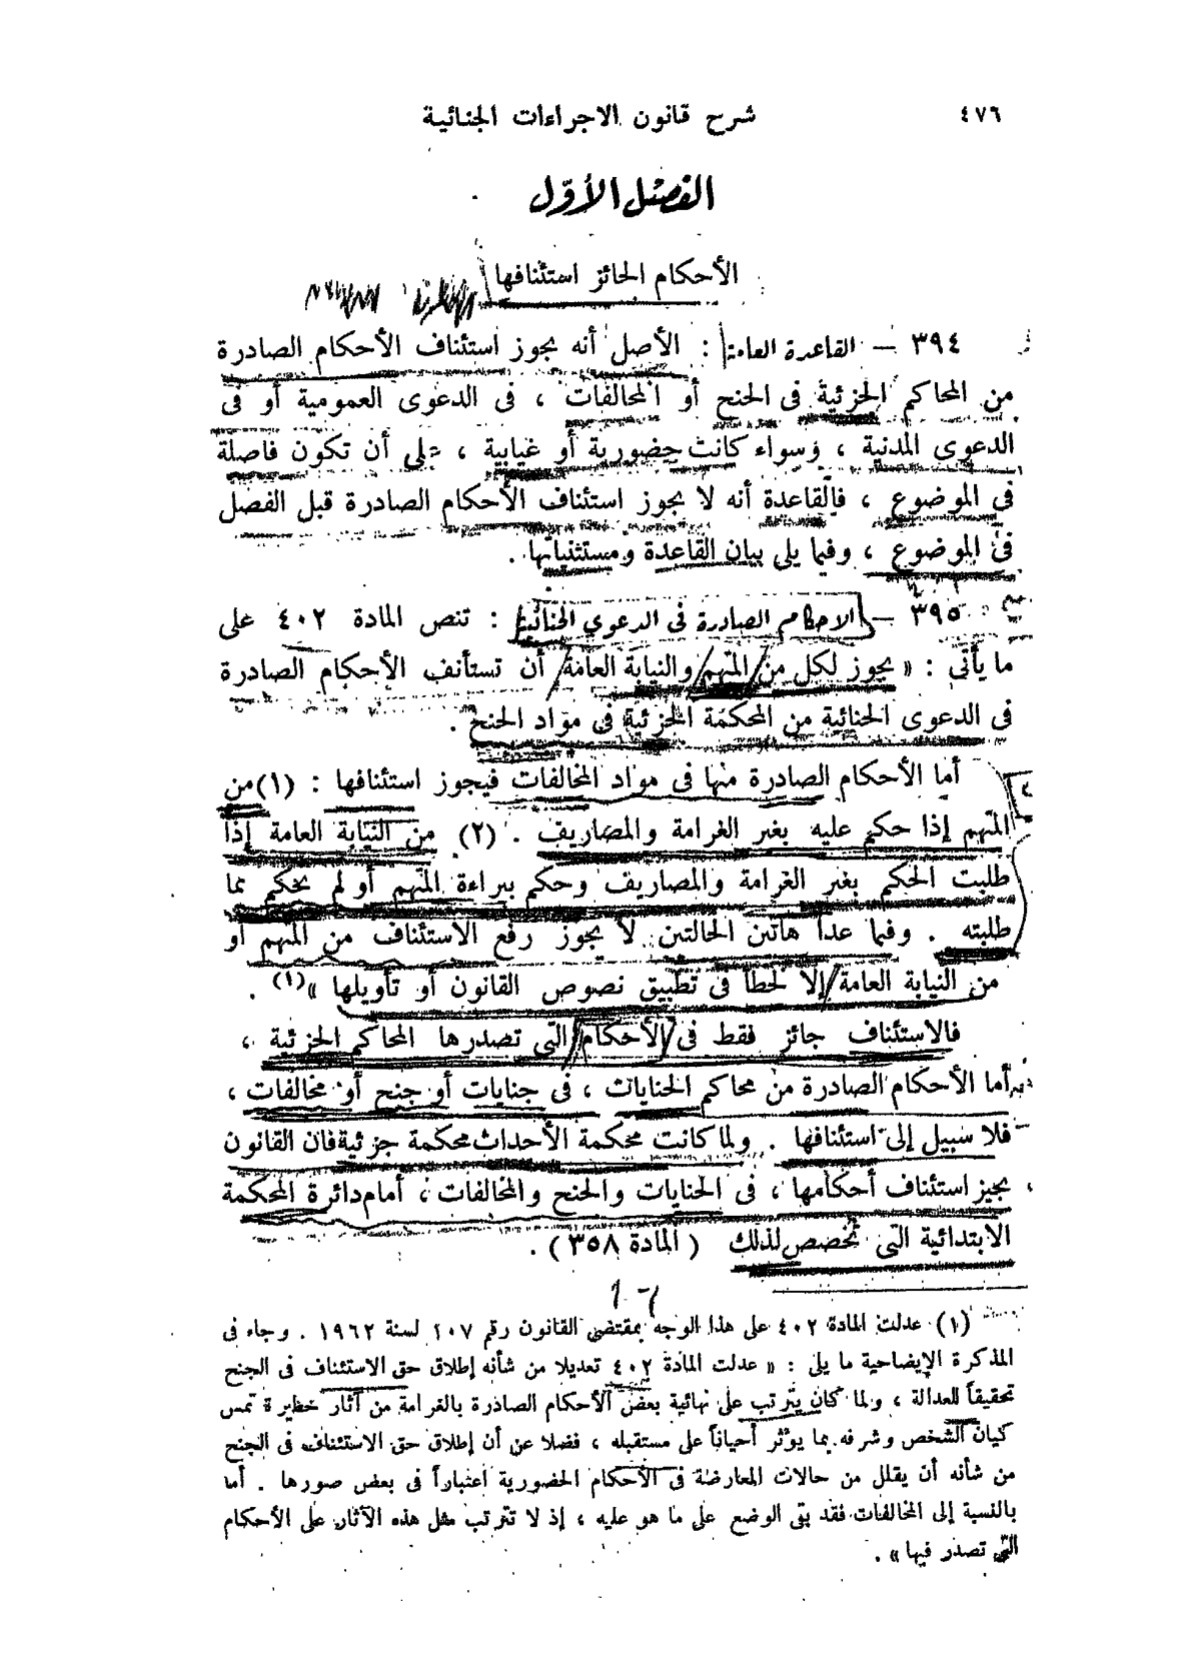 ٤٧٦ شرح قانون الاجراءات الجنائية
الفصل الأول
الأحكام الجائز استئنافها
٣٩٤ — القاعدة العامة : الأصل أنه يجوز استئناف الأحكام الصادرة
من المحاكم الجزئية فى الجنح أو المخالفات ، فى الدعوى العمومية أو فى
الدعوى المدنية ، وسواء كانت حضورية أو غيابية ، على أن تكون فاصلة
فى الموضوع ، فالقاعدة أنه لا يجوز استئناف الأحكام الصادرة قبل الفصل
فى الموضوع ، وفيما يلى بيان القاعدة ومستثنياتها .
٣٩٥ — الاحكام الصادرة فى الدعوى الجنائية : تنص المادة ٤٠٢ على
ما يأتى : « يجوز لكل من المتهم والنيابة العامة أن تستأنف الأحكام الصادرة
فى الدعوى الجنائية من المحكمة الجزئية فى مواد الجنح .
أما الأحكام الصادرة منها فى مواد المخالفات فيجوز استئنافها : (١) من
المتهم إذا حكم عليه بغير الغرامة والمصاريف . (٢) من النيابة العامة إذا
طلبت الحكم بغير الغرامة والمصاريف وحكم ببراءة المتهم أو لم يحكم بما
طلبته . وفيما عدا هاتين الحالتين لا يجوز رفع الاستئناف من المتهم أو
من النيابة العامة إلا لخطأ فى تطبيق نصوص القانون أو تأويلها »(١) .
فالاستئناف جائز فقط فى الأحكام التى تصدرها المحاكم الجزئية ،
أما الأحكام الصادرة من محاكم الجنايات ، فى جنايات أو جنح أو مخالفات ،
فلا سبيل إلى استئنافها . ولما كانت محكمة الأحداث محكمة جزئية فان القانون
يجيز استئناف أحكامها ، فى الجنايات والجنح والمخالفات ، أمام دائرة المحكمة
الابتدائية التى تخصص لذلك ( المادة ٣٥٨ ) .
(١) عدلت المادة ٤٠٢ على هذا الوجه بمقتضى القانون رقم ١٠٧ لسنة ١٩٦٢ . وجاء فى
المذكرة الإيضاحية ما يلى : « عدلت المادة ٤٠٢ تعديلا من شأنه إطلاق حق الاستئناف فى الجنح
تحقيقاً للعدالة ، ولما كان يترتب على نهائية بعض الأحكام الصادرة بالغرامة من آثار خطيرة تمس
كيان الشخص وشرفه بما يؤثر أحياناً على مستقبله ، فضلا عن أن إطلاق حق الاستئناف فى الجنح
من شأنه أن يقلل من حالات المعارضة فى الأحكام الحضورية اعتباراً فى بعض صورها . أما
بالنسبة إلى المخالفات فقد بقى الوضع على ما هو عليه ، إذ لا تترتب مثل هذه الآثار على الأحكام
التى تصدر فيها » .